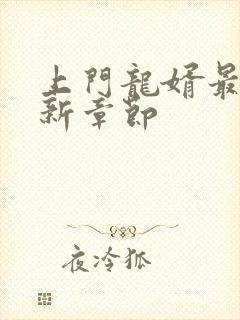 上門龍婿最
新章節
夜冷狐